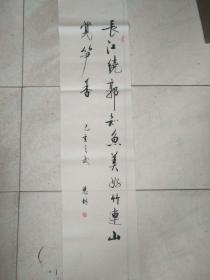 長江繞郭知魚美好竹連山
覺笋香
己亥之冬